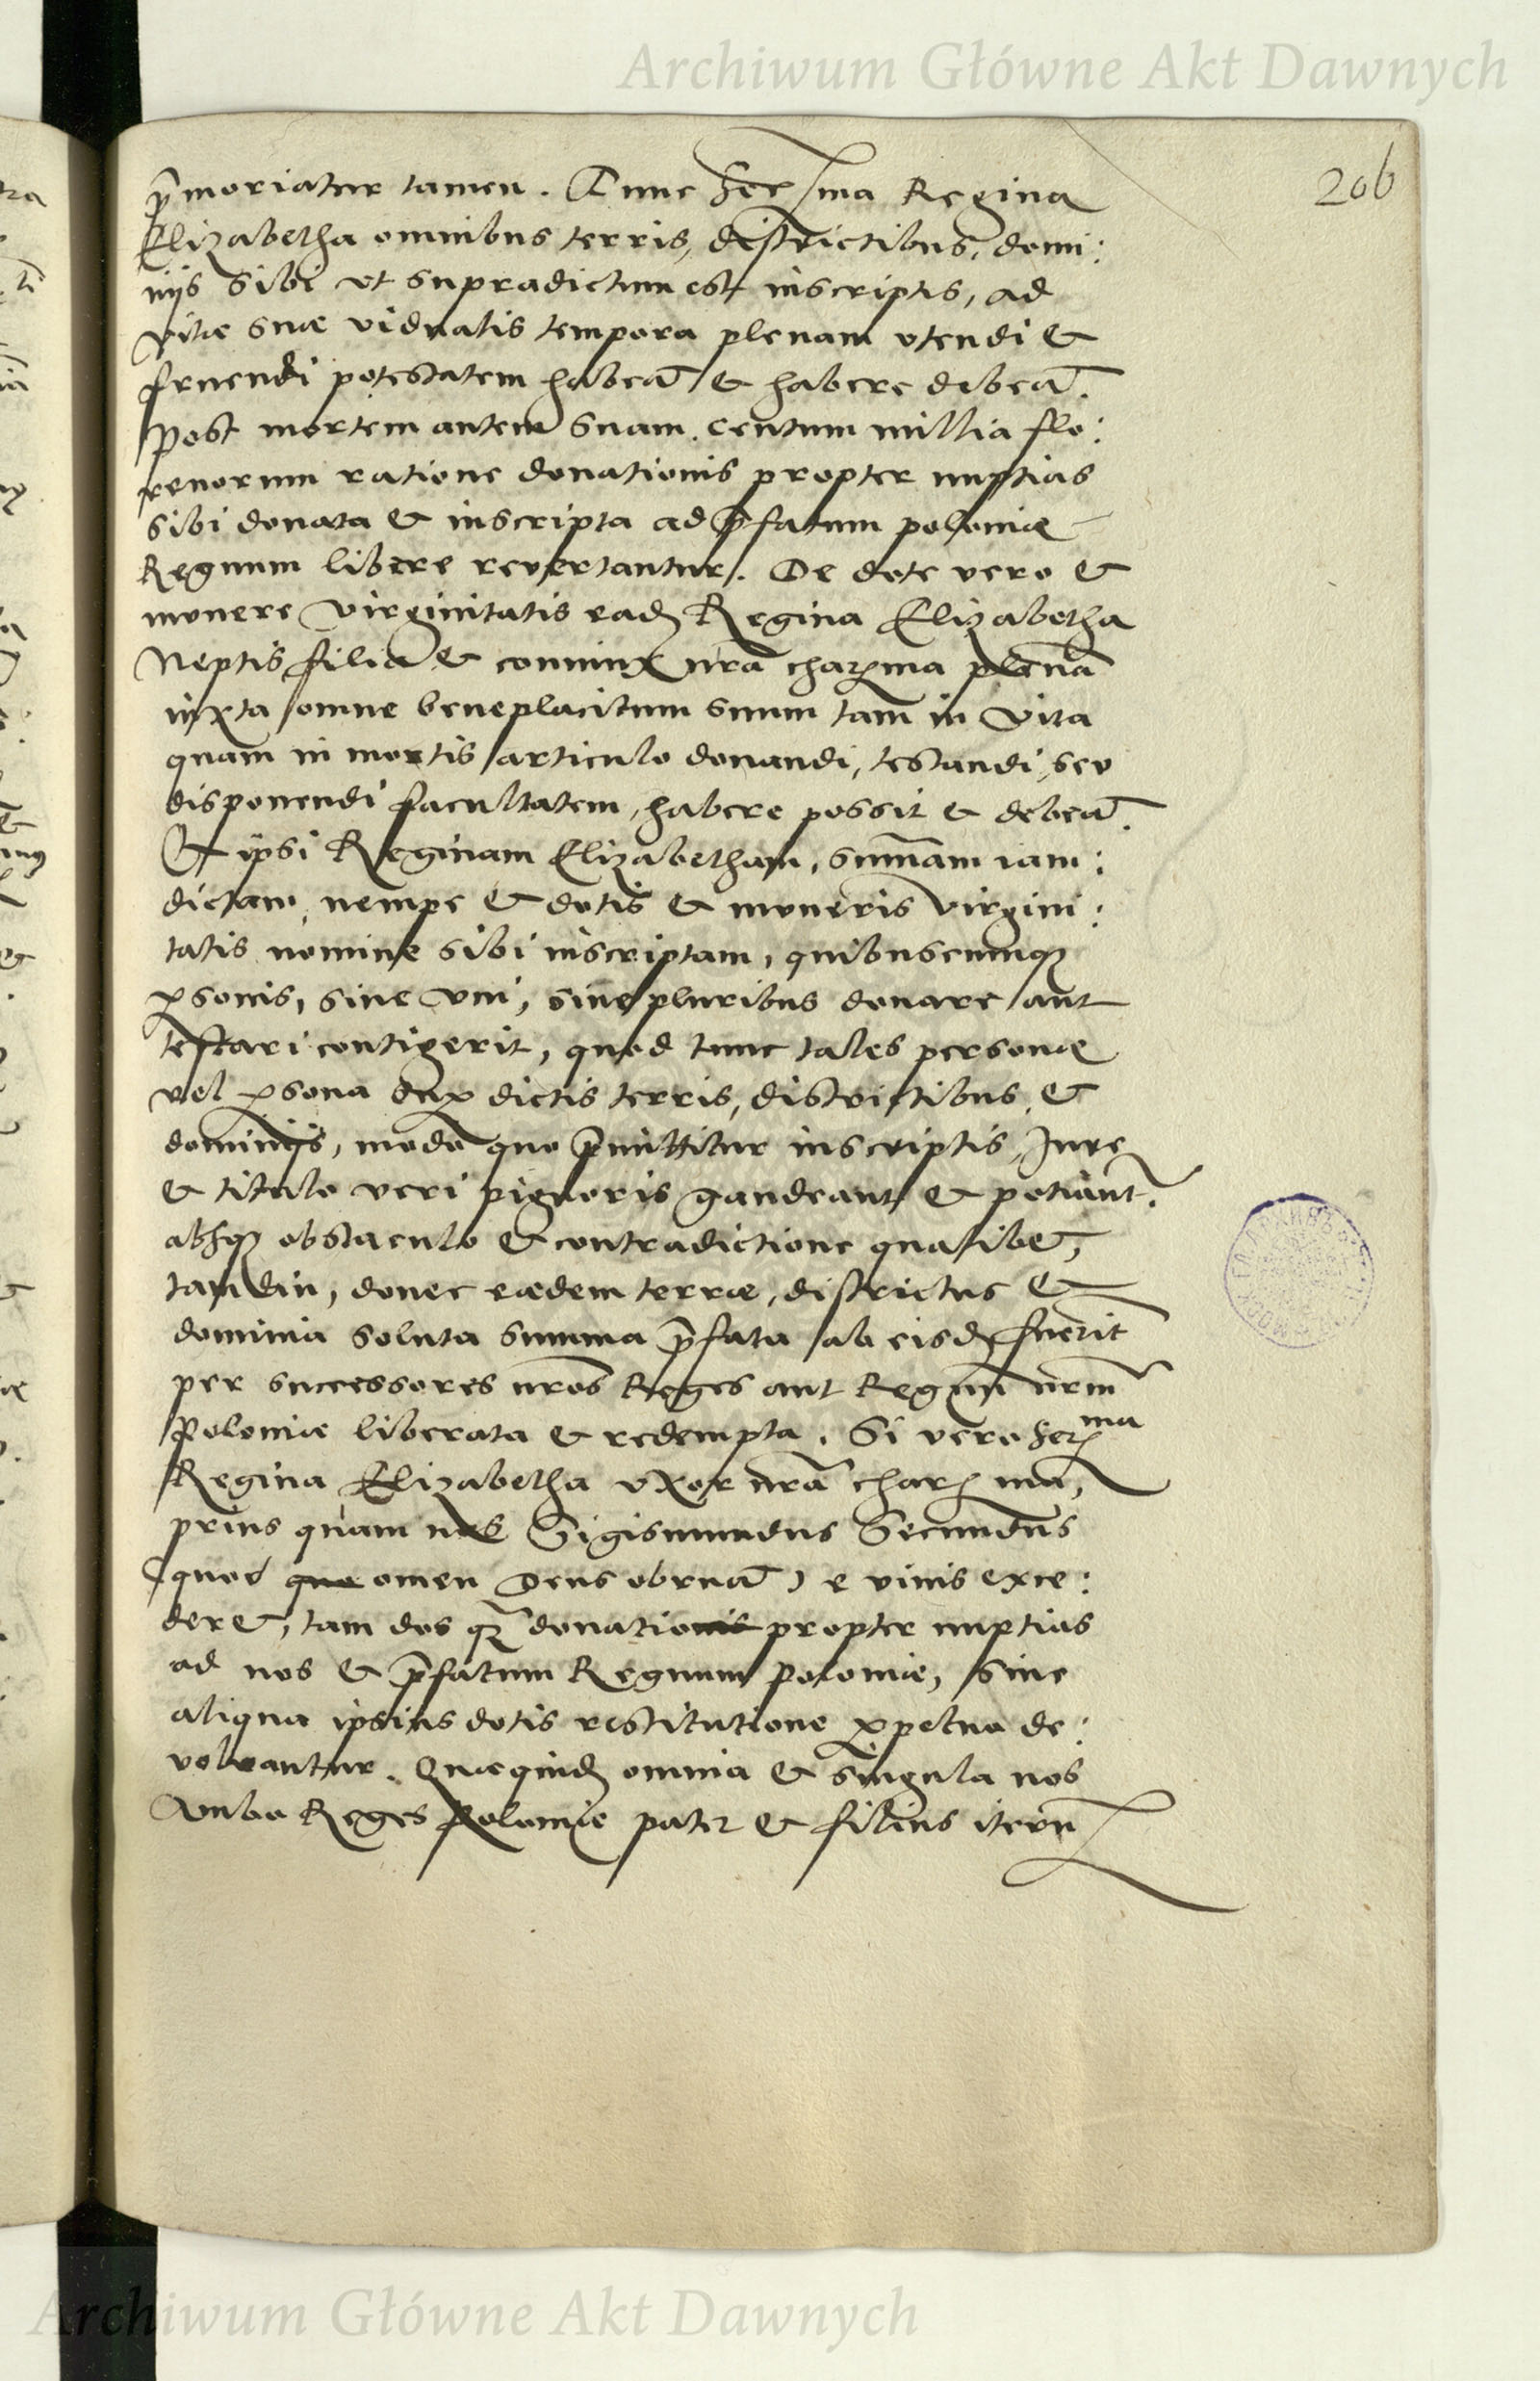 Archiwum Główne Akt Dawnych
206
p̄moriatur tamen. Tunc Serma Regina
Elizabetha omnibus terris, districtibus, domi:
nijs sibi vt supradictum est inscriptis, ad
vitæ suæ viduatis tempora plenam vtendi &
fruendi potestatem habeat̄ & habere dibeat̄.
Post mortem autem suam, centum millia flo:
renorum ratione donationis propter nuptias
sibi donata & inscripta ad p̄fatum poloniæ
Regnum libere revertantur. De dote vero &
munere virginitatis ead Regina Elizabetha
Neptis filia & coniunx nrā charma plenā
iuxta omne beneplacitum suum tam in vita
quam in mortis articulo donandi, testandi, seu
disponendi facultatem, habere possit & debeat̄.
Et ipsi Reginam Elizabetham, sum̄am iam:
dictam, nempe & dotis & muneris virgini:
tatis nomine sibi inscriptam, quibuscumq
psonis, siue vni, siue pluribus donare aut
testari contigerit, quod tunc tales personæ
vel psona sup dictis terris, districtibus, &
dominijs, modo quo p̄mittitur inscriptis, Iure
& titulo veri pignoris gaudeant & potiant.
absq obstaculo & contradictione qualibet,
tamdiu, donec eædem terræ, districtus &
dominia soluta summa p̄fata ab eisd fuerit
per successores nros Reges aut Regnū nrm̄
Poloniæ liberata & redempta. Si vero Serma
Regina Elizabetha vxor nrā charma,
prius quam nos Sigismundus Secundus
(quod quo omen Deus obruat̄) e viuis exce:
deret, tam dos q̄ donationis propter nuptias
ad nos & p̄fatum Regnum poloniæ, sine
aliqua ipsius dotis restitutione ppetuo de:
voluantur. Quæquid omnia & singula nos
Ambo Reges Poloniæ pater & filius iterū
Archiwum Główne Akt Dawnych